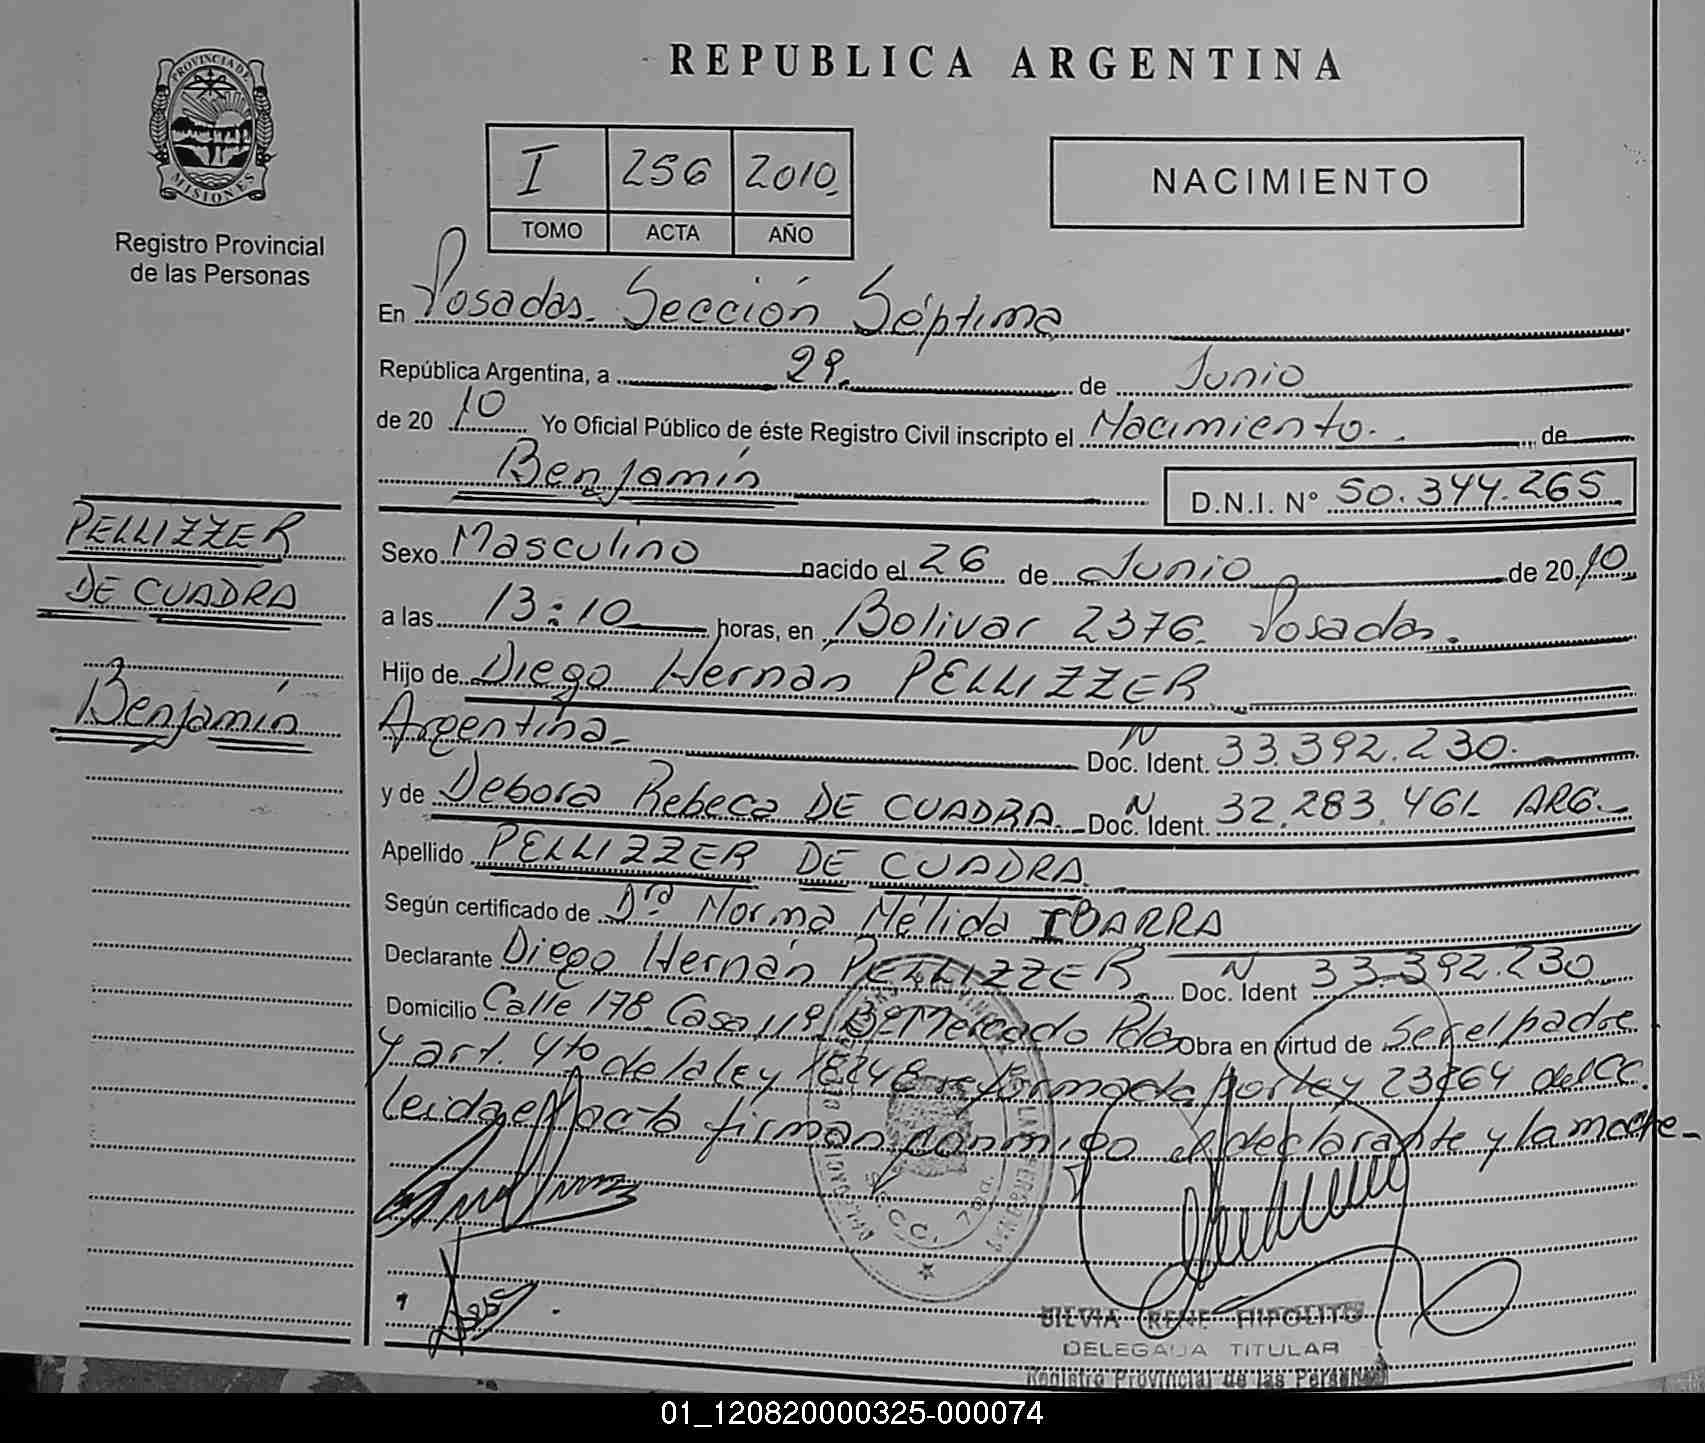 REPUBLICA ARGENTINA
PROVINCIA DE
MISIONES
Registro Provincial
de las Personas
I 256 2010
TOMO ACTA AÑO
NACIMIENTO
En Posadas. Sección Séptima
República Argentina, a 29. de Junio
de 20 10 Yo Oficial Público de éste Registro Civil inscripto el Nacimiento. de
Benjamín D.N.I. N° 50.344.265
PELLIZZER
DE CUADRA
Benjamín
Sexo Masculino nacido el 26 de Junio de 20 10
a las 13:10 horas, en Bolivar 2376. Posadas.
Hijo de Diego Hernán PELLIZZER
Argentina. Doc. Ident. N 33.392.230.
y de Debora Rebeca DE CUADRA. Doc. Ident. N 32.283.461 ARG.
Apellido PELLIZZER DE CUADRA
Según certificado de Dra Norma Nélida IBARRA
Declarante Diego Hernán PELLIZZER Doc. Ident N 33.392.230
Domicilio Calle 178 Casa 119 Bº Mercado Obra en virtud de ser el padre
y art. 4to de la ley 18248 reformada por ley 23264 del CC.
Leida el acta firman conmigo el declarante y la madre
SILVIA RENE HIPOLITO
DELEGADA TITULAR
Registro Provincial de las Personas
01_120820000325-000074